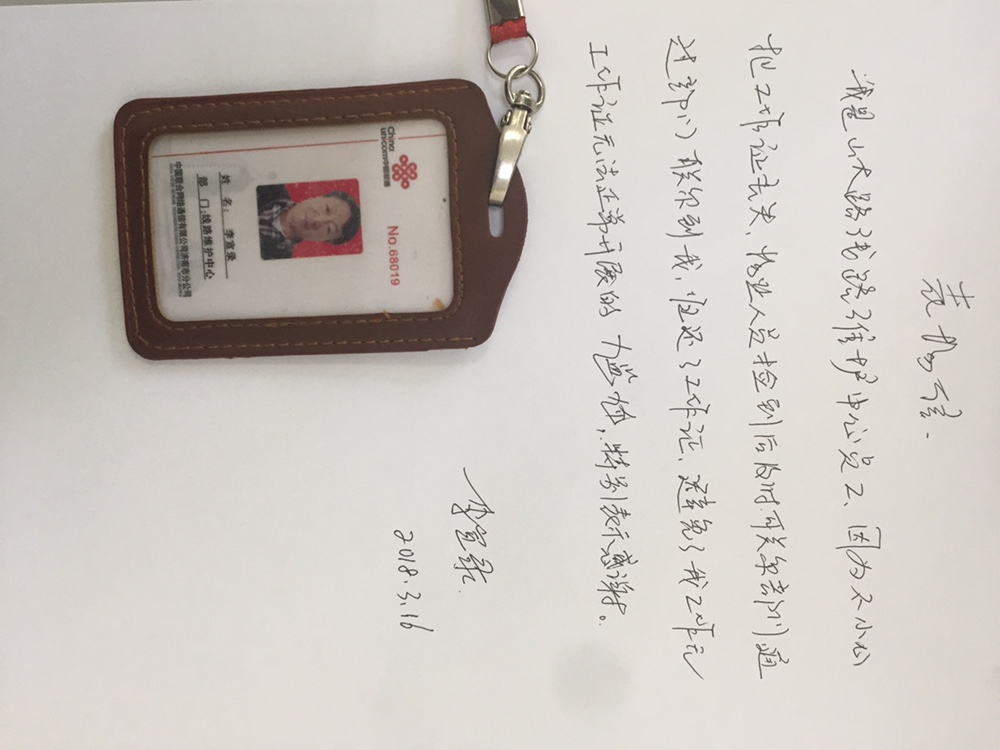 表扬信.
我是山大路线路维护中心员工、因为不小心
把工作证丢失、物业人员捡到后及时联系部门通
过部门联系到我,归还了工作证、避免了我工作无
工作证无法正常开展的尴尬,特别表示感谢。
李宣录.
2018.3.16
China
unicom中国联通
No.68019
姓 名:李宣录
部 门:线路维护中心
中国联合网络通信有限公司济南市分公司